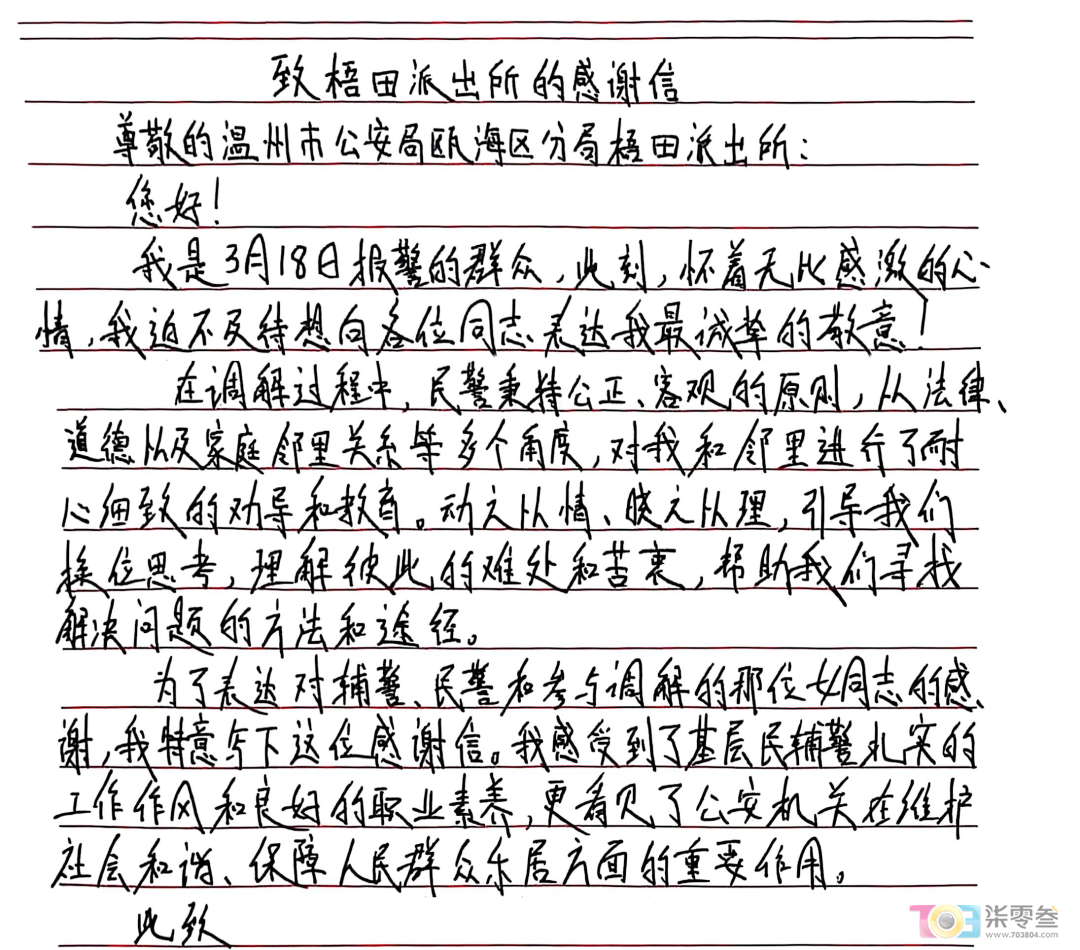 致梧田派出所的感谢信
尊敬的温州市公安局瓯海区分局梧田派出所：
您好！
我是3月18日报警的群众，此刻，怀着无比感激的心
情，我迫不及待想向各位同志表达我最诚挚的敬意！
在调解过程中，民警秉持公正、客观的原则，从法律、
道德以及家庭邻里关系等多个角度，对我和邻里进行了耐
心细致的劝导和教育。动之以情、晓之以理，引导我们
换位思考，理解彼此的难处和苦衷，帮助我们寻找
解决问题的方法和途径。
为了表达对辅警、民警和参与调解的那位女同志的感
谢，我特意写下这位感谢信。我感受到了基层民辅警扎实的
工作作风和良好的职业素养，更看见了公安机关在维护
社会和谐、保障人民群众乐居方面的重要作用。
此致
703 柒零叁
www.703804.com